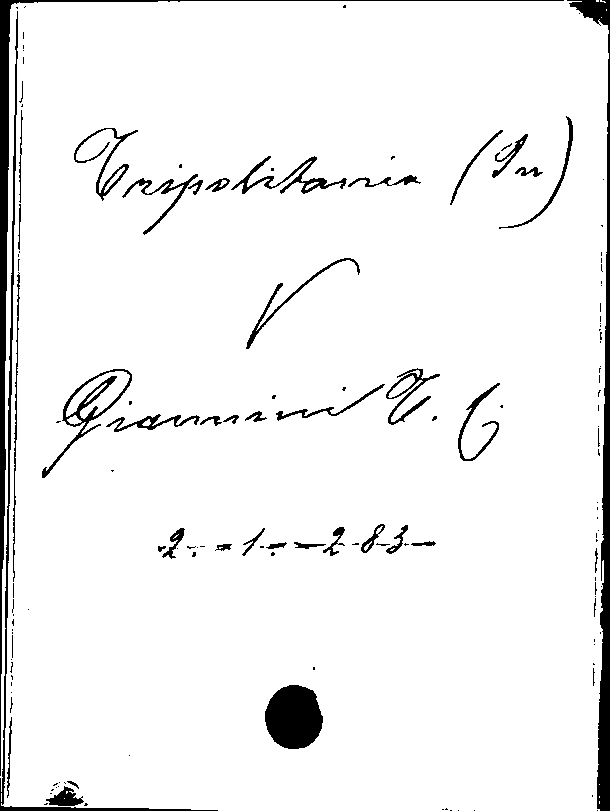 Tripolitania (In)
V
Giannini T. C.
2. - 1. - 283